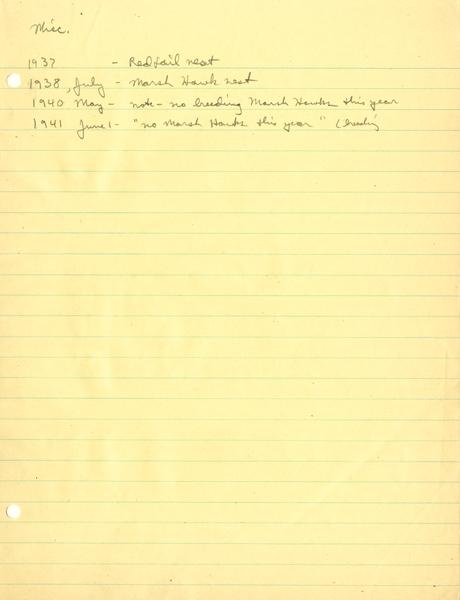 Misc.
1937 - Redtail nest
1938, July - Marsh Hawk nest
1940 May - note - no breeding Marsh Hawks this year
1941 June 1 - "no Marsh Hawks this year" (breeding